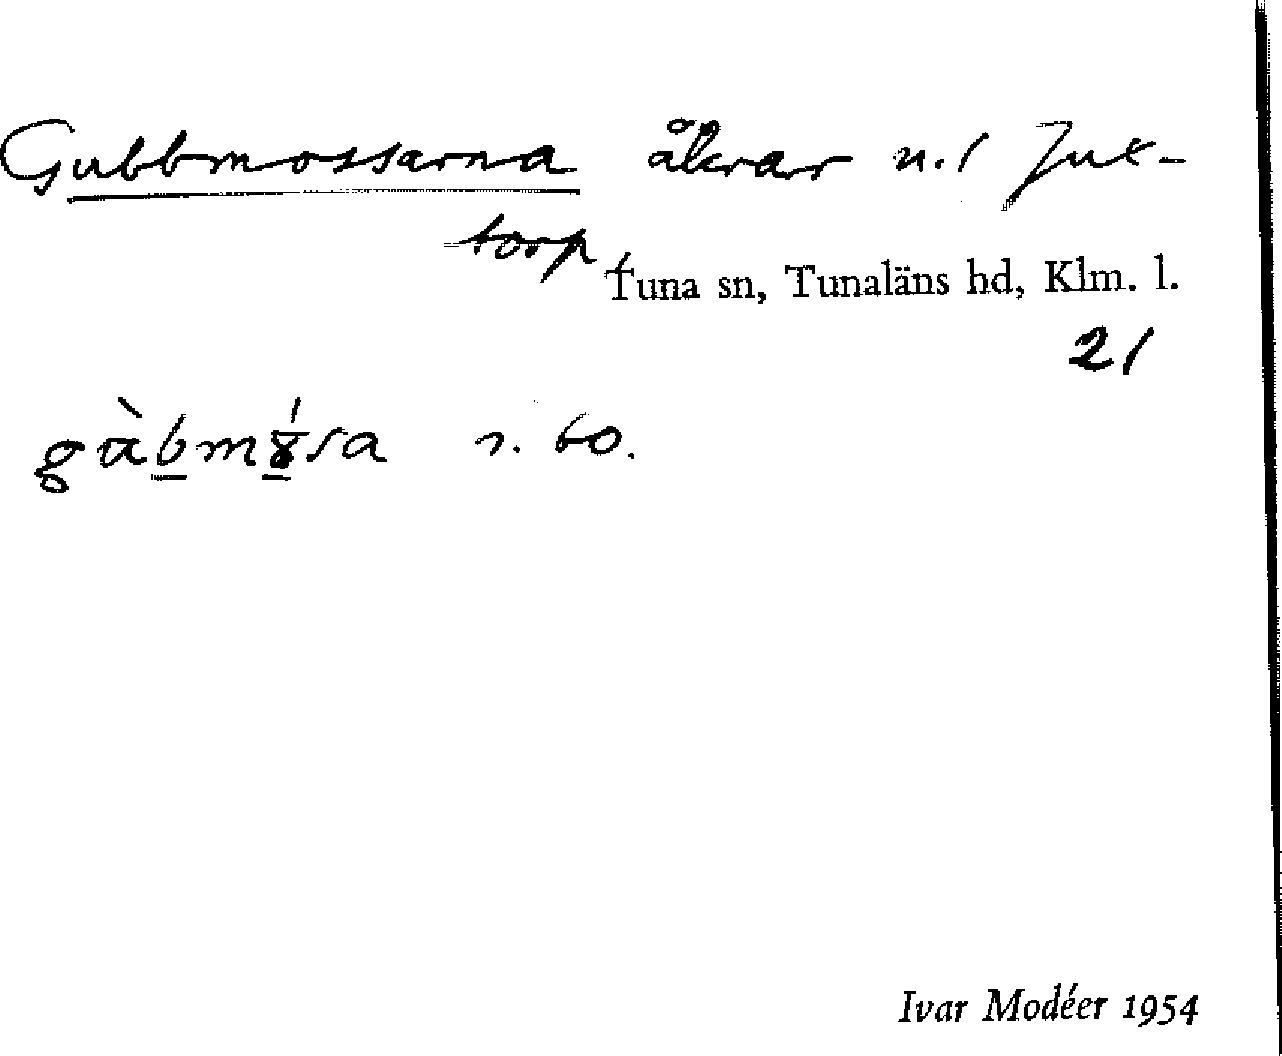 Gubbmossarna åkrar n. / Jux-
torp
Tuna sn, Tunaläns hd, Klm. l.
21
s. bo.
Ivar Modéer 1954